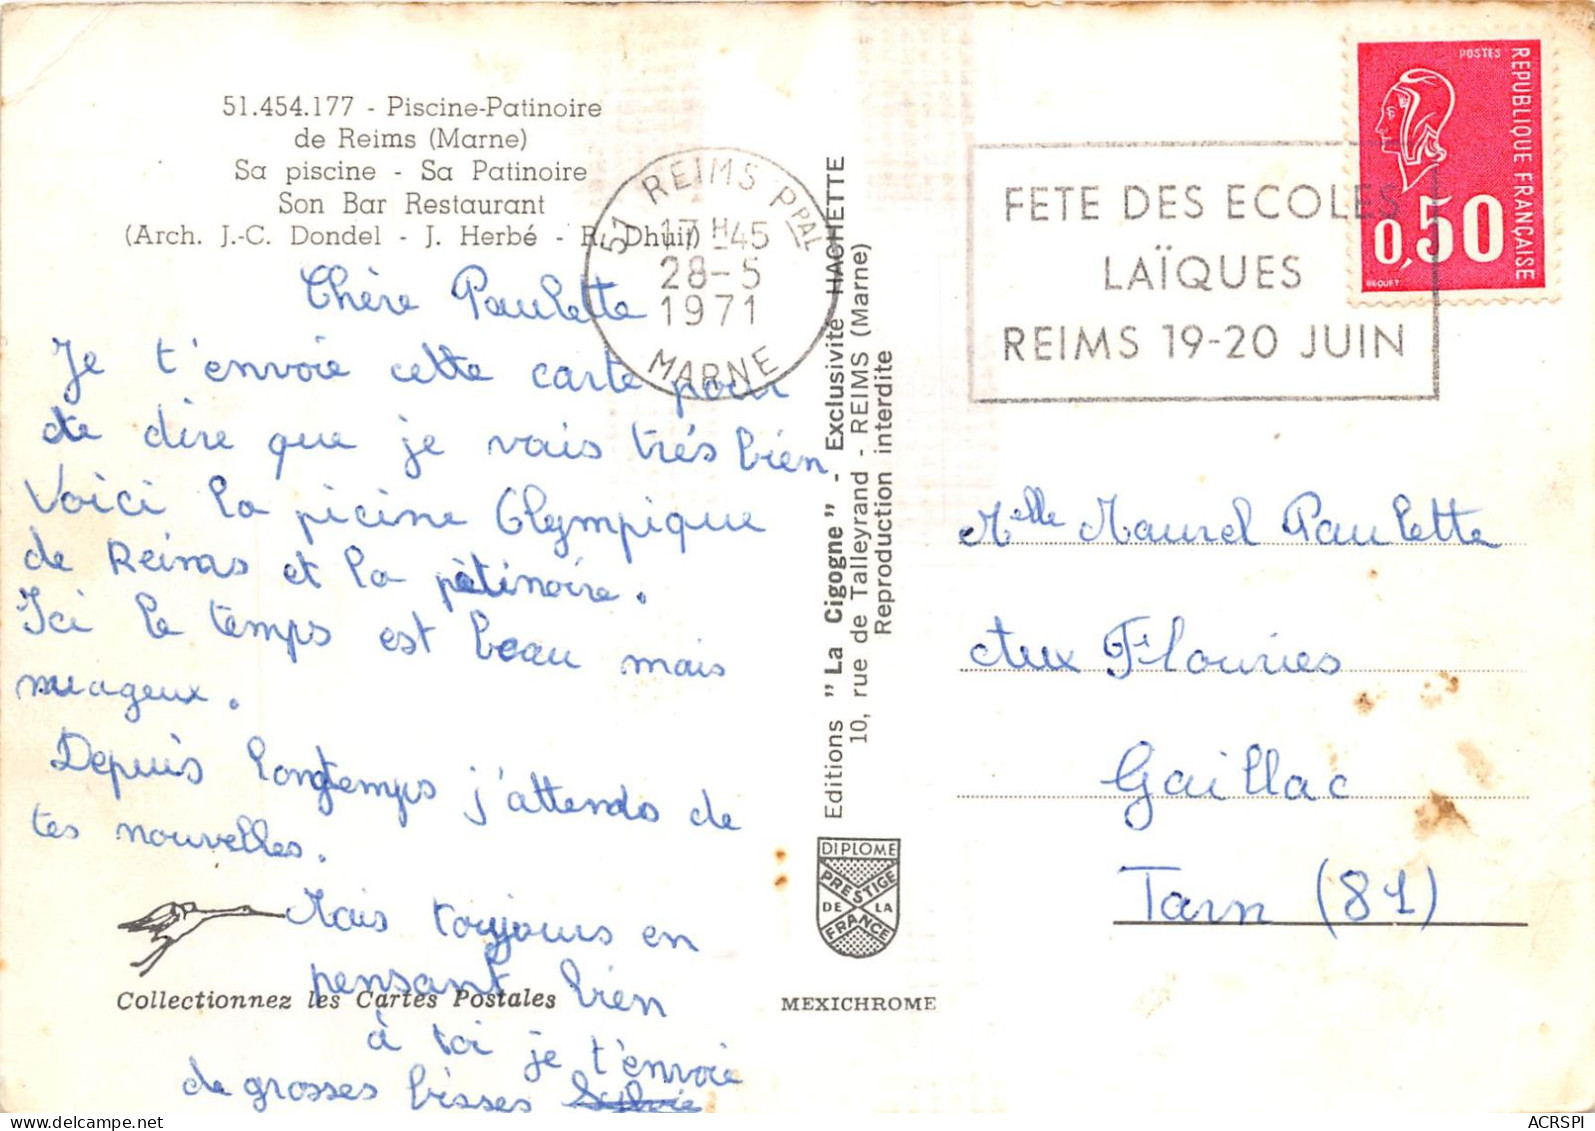 51.454.177 - Piscine-Patinoire
de Reims (Marne)
Sa piscine - Sa Patinoire
Son Bar Restaurant
(Arch. J.-C. Dondel - J. Herbé - R. Dhuit)
Chère Paulette
Je t'envoie cette carte pour
te dire que je vais très bien
Voici la picine Olympique
de Reims et la patinoire.
Ici le temps est beau mais
nuageux.
Depuis longtemps j'attends de
tes nouvelles.
Mais toujours en
pensant bien
à toi je t'envoie
de grosses bisses Sylvie
Collectionnez les Cartes Postales
51 REIMS PPAL
17H-45
28-5
1971
MARNE
Editions "La Cigogne" - Exclusivité HACHETTE
10, rue de Talleyrand - REIMS (Marne)
Reproduction interdite
DIPLOME
PRESTIGE
DE LA
FRANCE
MEXICHROME
FETE DES ECOLES
LAÏQUES
REIMS 19-20 JUIN
POSTES
REPUBLIQUE FRANÇAISE
0,50
BEQUET
Melle Maurel Paulette
Aux Flouries
Gaillac
Tarn (81)
delcampe.net
ACRSPI